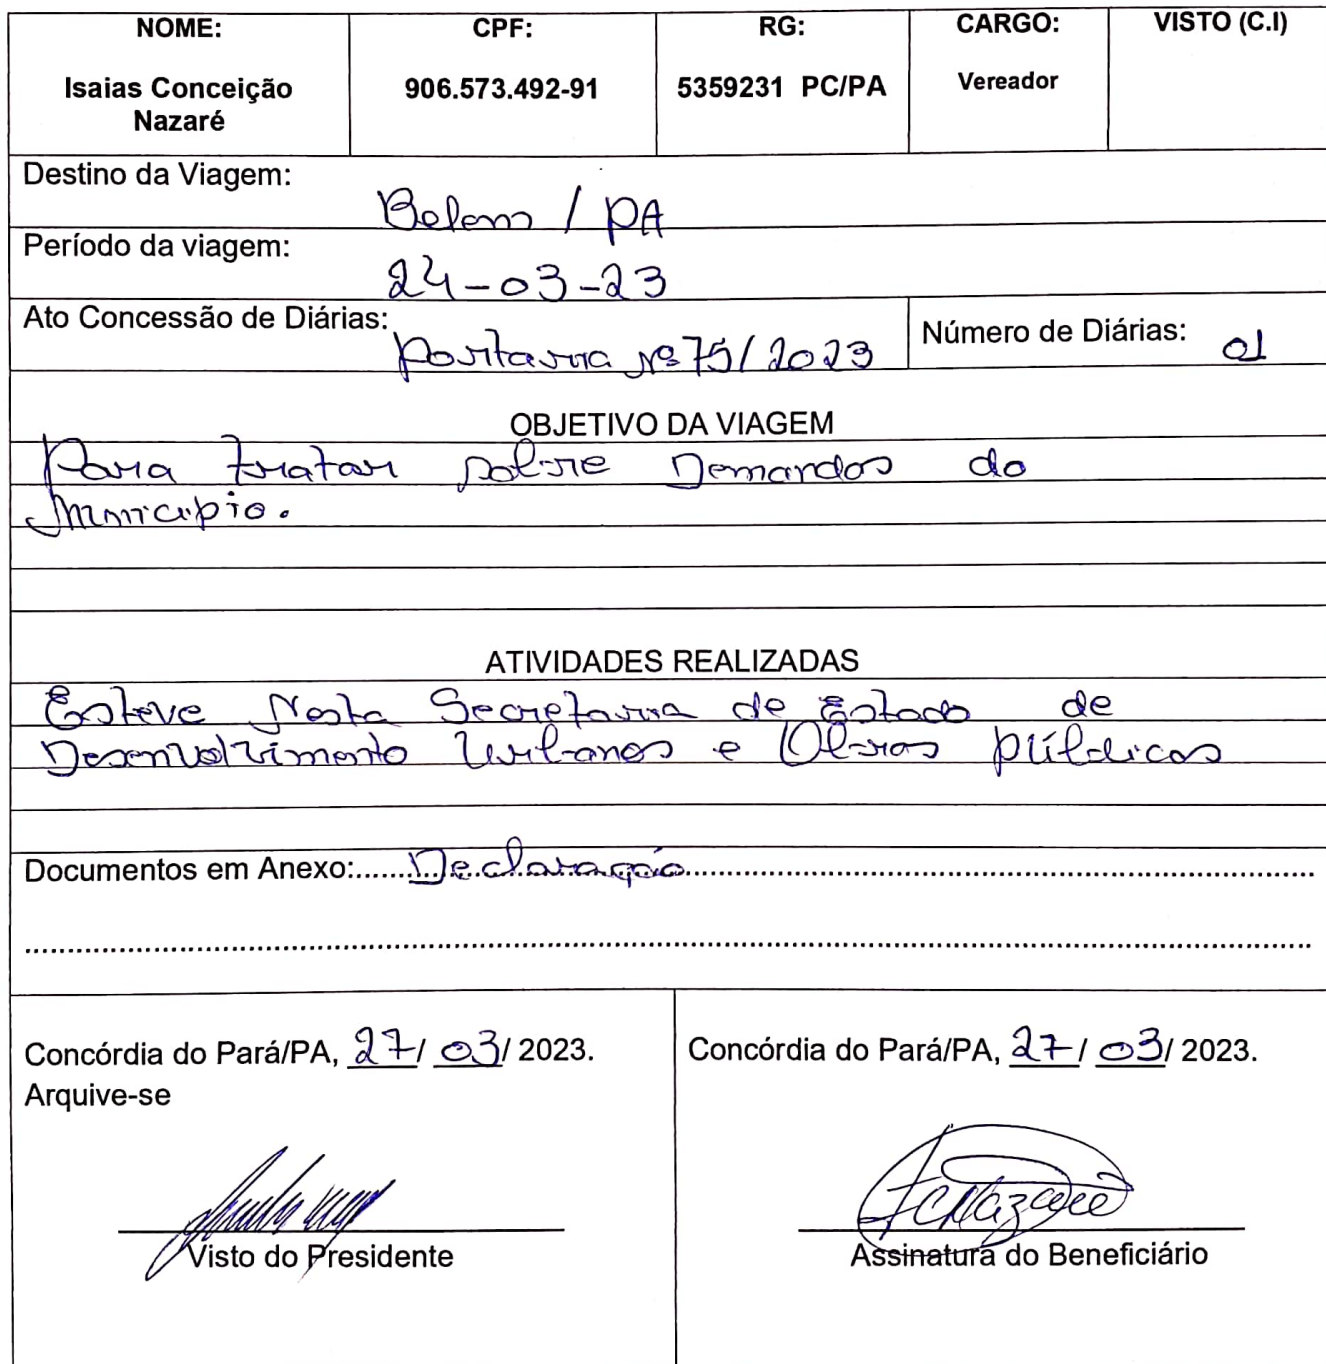 NOME: CPF: RG: CARGO: VISTO (C.I)
Isaias Conceição 906.573.492-91 5359231 PC/PA Vereador
Nazaré
Destino da Viagem:
Belem / PA
Período da viagem:
24-03-23
Ato Concessão de Diárias: Portaria nº 75/2023 Número de Diárias: 01
OBJETIVO DA VIAGEM
Para tratar sobre Demandas do
Municipio.
ATIVIDADES REALIZADAS
Esteve Nesta Secretaria de Estado de
Desenvolvimento Urbanos e Obras públicas
Documentos em Anexo:.......Declaração.......
Concórdia do Pará/PA, 27/ 03/ 2023.
Arquive-se
Visto do Presidente
Concórdia do Pará/PA, 27/ 03/ 2023.
Nazaré
Assinatura do Beneficiário